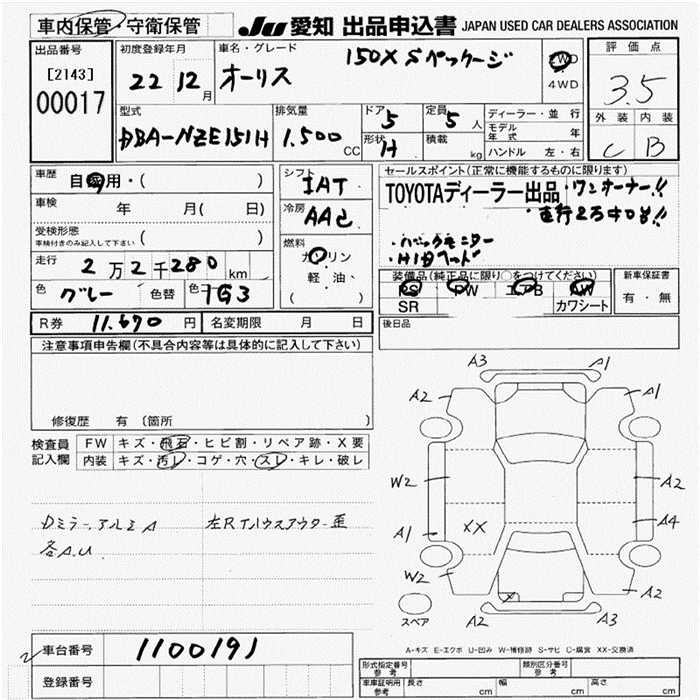 車内保管・守衛保管
JU 愛知 出品申込書 JAPAN USED CAR DEALERS ASSOCIATION
出品番号 [2143] 00017
初度登録年月 22 12 月
車名・グレード 150X Sパッケージ
オーリス
2WD
4WD
評価点 3.5
外装 内装
C B
型式 DBA-NZE151H
排気量 1.500 CC
ドア 5
形状 H
定員 5 人
積載 kg
ディーラー・並行
モデル年式 年
ハンドル 左・右
車歴 自家用・( )
車検 年 月( 日)
受検形態 ( )
車検付きのみ記入して下さい
走行 2万2千280 km
色 グレー 色替 色 1G3
シフト IAT
冷房 AAC
燃料 ガソリン
軽油、
( )
セールスポイント(正常に機能するものに限ります)
TOYOTAディーラー出品・ワンオーナー!!
・バックモニター
・HIDヘッド
装備品(純正品に限り○をつけてください)
PS PW エアB AW
SR カワシート
新車保証書
有・無
後日品
R券 11.670 円 名変期限 月 日
注意事項申告欄(不具合内容等は具体的に記入して下さい)
修復歴 有 (箇所 )
検査員記入欄
FW キズ・飛石・ヒビ割・リペア跡・X要
内装 キズ・汚レ・コゲ・穴・スレ・キレ・破レ
Dミラー、アルミA 左RTハウスアウター歪
各A.U
A3 A1
A2 A1
W2 A2
A1 XX A4
W2 A2
X
スペア A2 A3
A-キズ E-エクボ U-凹み W-補修跡 S-サビ C-腐食 XX-交換済
車台番号 1100191
登録番号
形式指定番号 参考 類別区分番号 参考
車車証明用 参考 長さ cm 幅 cm 高さ cm